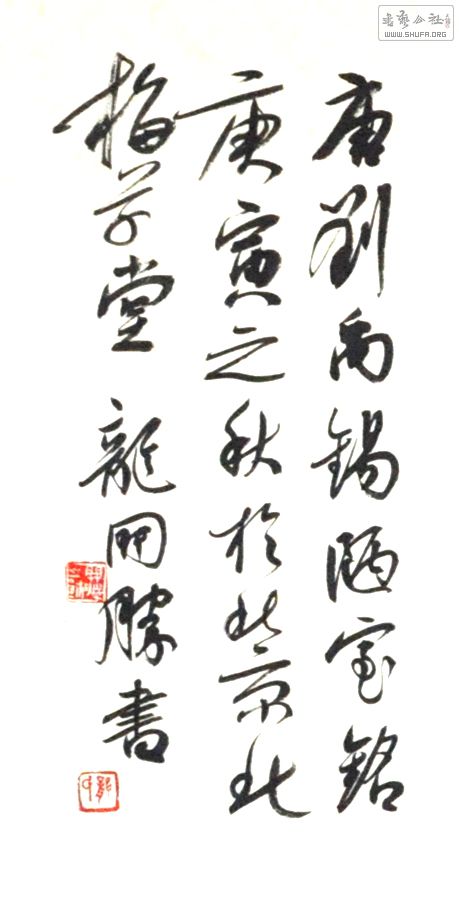 書藝公社
WWW.SHUFA.ORG
唐劉禹錫陋室銘
庚寅之秋於北京北
梅草堂 龍開勝書